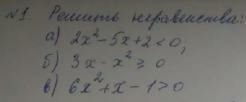 №1. Решить неравенства:
а) 2x² - 5x + 2 < 0,
б) 3x - x² ≥ 0
в) 6x² + x - 1 > 0